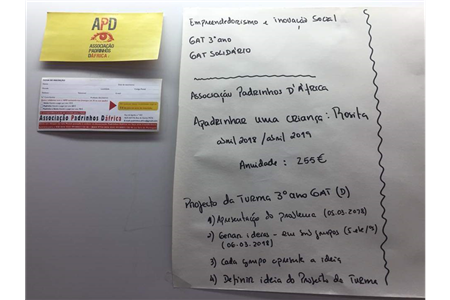 APD
ASSOCIAÇÃO
PADRINHOS
D'ÁFRICA
Associação Padrinhos Dáfrica
Empreendedorismo e inovação Social
GAT 3º ano
GAT SOLIDÁRIO
Associação Padrinhos D'África
Apadrinhar uma criança: Rosita
abril 2018 / abril 2019
Anuidade : 255€
Projecto da Turma 3º ano GAT (D)
1) Apresentação do problema (05.03.2018)
2) Gerar ideias - em grupos
(06.03.2018)
3) Cada grupo apresenta a ideia
4) Definir ideia do Projecto da Turma